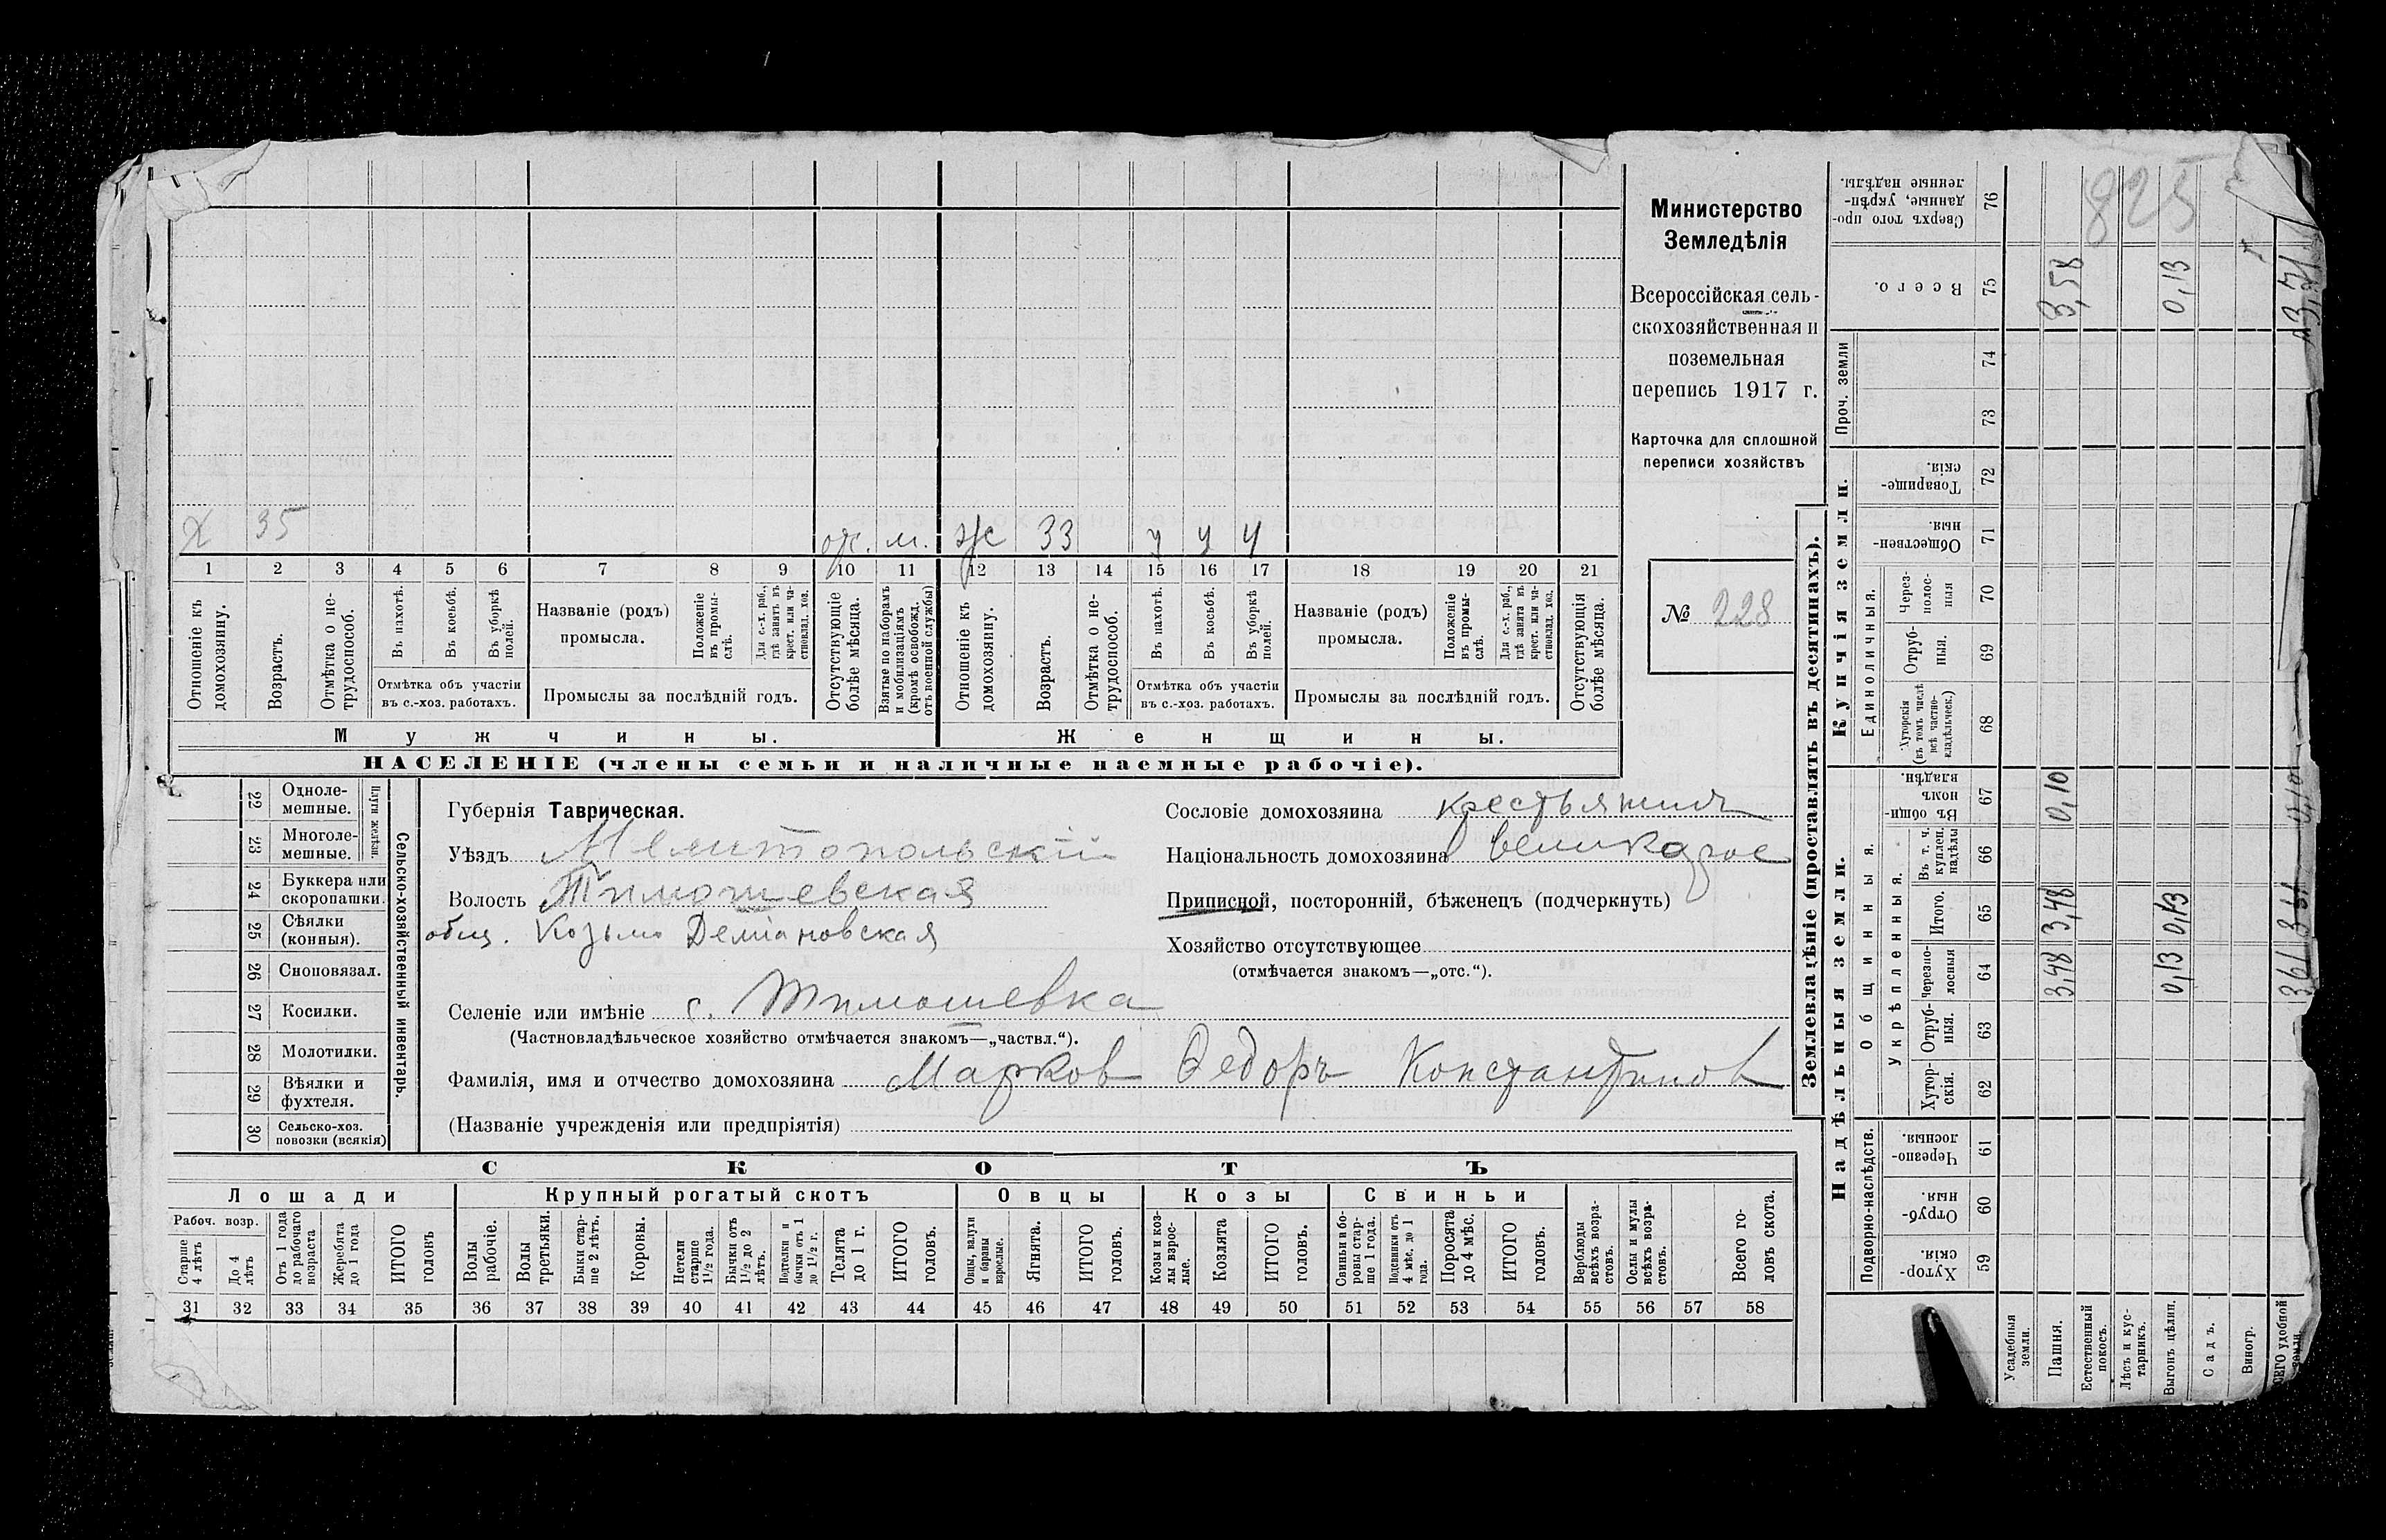 Министерство
Земледѣлія
Всероссійская сель-
скохозяйственная и
поземельная
перепись 1917 г.
Карточка для сплошной
переписи хозяйствъ
№ 228
Х 35 от. м. Ж 33 у у у
1 2 3 4 5 6 7 8 9 10 11 12 13 14 15 16 17 18 19 20 21
Отношеніе къ домохозяину.
Возрастъ.
Отмѣтка о не-трудоспособ.
Въ пахотѣ.
Въ косьбѣ.
Въ уборкѣ полей.
Отмѣтка объ участіи
въ с.-хоз. работахъ.
Названіе (родъ)
промысла.
Положеніе въ промы-слѣ.
Для с.-х. раб., гдѣ занятъ въ крест. или ча-стновлад. хоз.
Промыслы за послѣдній годъ.
Отсутствующіе болѣе мѣсяца.
Взятые по наборамъ и мобилизаціямъ (кромѣ освобожд. отъ военной службы)
Отношеніе къ домохозяину.
Возрастъ.
Отмѣтка о не-трудоспособ.
Въ пахотѣ.
Въ косьбѣ.
Въ уборкѣ полей.
Отмѣтка объ участіи
въ с.-хоз. работахъ.
Названіе (родъ)
промысла.
Положеніе въ промы-слѣ.
Для с.-х. раб., гдѣ занята въ крест. или ча-стновлад. хоз.
Промыслы за послѣдній годъ.
Отсутствующія болѣе мѣсяца.
Мужчины. Женщины.
НАСЕЛЕНІЕ (члены семьи и наличные наемные рабочіе).
Сельско-хозяйственный инвентарь.
Плуги желѣзн.
22 Одноле-мешные.
23 Многоле-мешные.
24 Буккера или скоропашки.
25 Сѣялки (конныя).
26 Сноповязал.
27 Косилки.
28 Молотилки.
29 Вѣялки и фухтеля.
30 Сельско-хоз. повозки (всякія)
Губернія Таврическая.
Уѣздъ Мелитопольскій
Волость Тимошевская
общ. Козьмо Деміановская
Селеніе или имѣніе с. Тимошевка
(Частновладѣльческое хозяйство отмѣчается знакомъ—„частвл.“).
Фамилія, имя и отчество домохозяина Марков Ѳедоръ Константинов
(Названіе учрежденія или предпріятія)
Сословіе домохозяина крестьянинъ
Національность домохозяина великорос
Приписной, посторонній, бѣженецъ (подчеркнуть)
Хозяйство отсутствующее
(отмѣчается знакомъ—„отс.“).
СКОТЪ
Лошади Крупный рогатый скотъ Овцы Козы Свиньи
Рабоч. возр.
Старше 4 лѣтъ
До 4 лѣтъ
Отъ 1 года до рабочаго возраста
Жеребята до 1 года
ИТОГО головъ
Волы рабочіе.
Волы третьяки.
Быки стар-ше 2 лѣтъ.
Коровы.
Нетели старше 1½ года.
Бычки отъ 1½ до 2 лѣтъ.
Подтелки и бычки отъ 1 до 1½ г.
Телята до 1 г.
ИТОГО головъ.
Овцы, валухи и бараны взрослые.
Ягнята.
ИТОГО головъ.
Козы и коз-лы взрос-лые.
Козлята
ИТОГО головъ.
Свиньи и бо-ровы стар-ше 1 года.
Подсвинки отъ 4 мѣс. до 1 года.
Поросята до 4 мѣс.
ИТОГО головъ.
Верблюды всѣхъ возра-стовъ.
Ослы и мулы всѣхъ возра-стовъ.
Всего го-ловъ скота.
31 32 33 34 35 36 37 38 39 40 41 42 43 44 45 46 47 48 49 50 51 52 53 54 55 56 57 58
Землевладѣніе (проставлять въ десятинахъ).
Надѣльныя земли. Купчія земли. Проч. земли
Подворно-наслѣдств.
Общинныя.
Укрѣпленныя.
Единоличныя.
Хутор-скія 59
Отруб-ныя. 60
Черезпо-лосныя. 61
Хутор-скія. 62
Отруб-ныя. 63
Черезпо-лосныя 64
Итого. 65
Въ т. ч. куплен. надѣлы 66
Въ общин-номъ владѣн. 67
Хуторскія (въ томъ числѣ всѣ частно-владѣльческ.) 68
Отруб-ныя. 69
Через-полос-ныя 70
Обществен-ныя. 71
Товарище-скія. 72
73
74
Всего. 75
Сверхъ того про-данные, укрѣп-ленные надѣлы. 76
825
Усадебныя земли.
Пашня. 3,48 3,48 0,10 3,58
Естественный покосъ.
Лѣсъ и кус-тарникъ.
Выгонъ цѣлин. 0,13 0,13 0,13
Садъ.
Виногр.
ВСЕГО удобной земли. 3,61 0,10